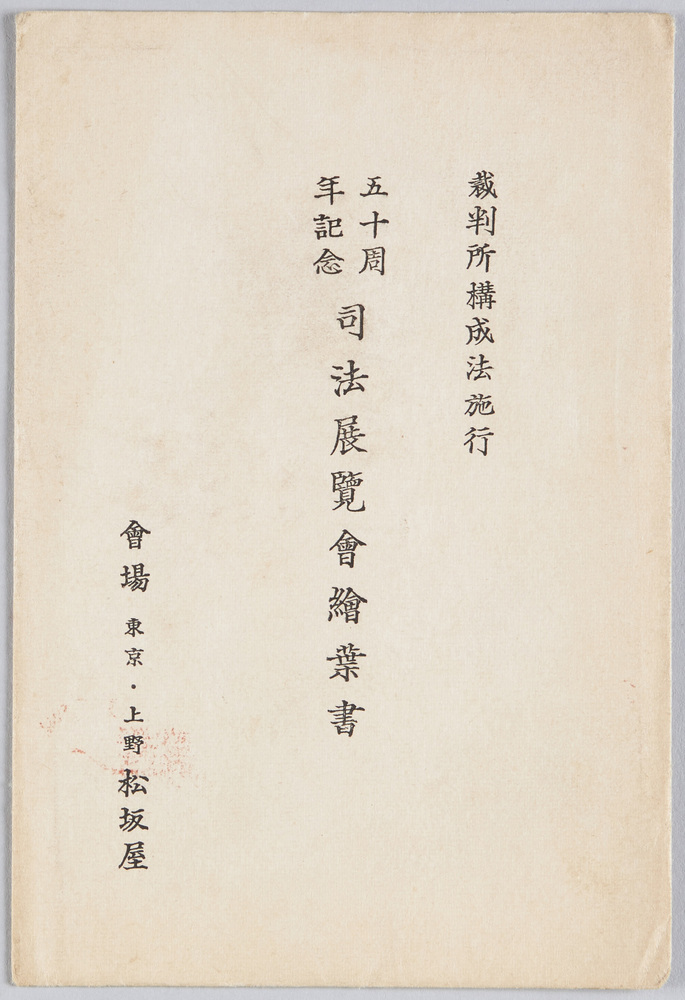 裁判所構成法施行
五十周
年記念
司法展覽會繪葉書
會場 東京・上野 松坂屋